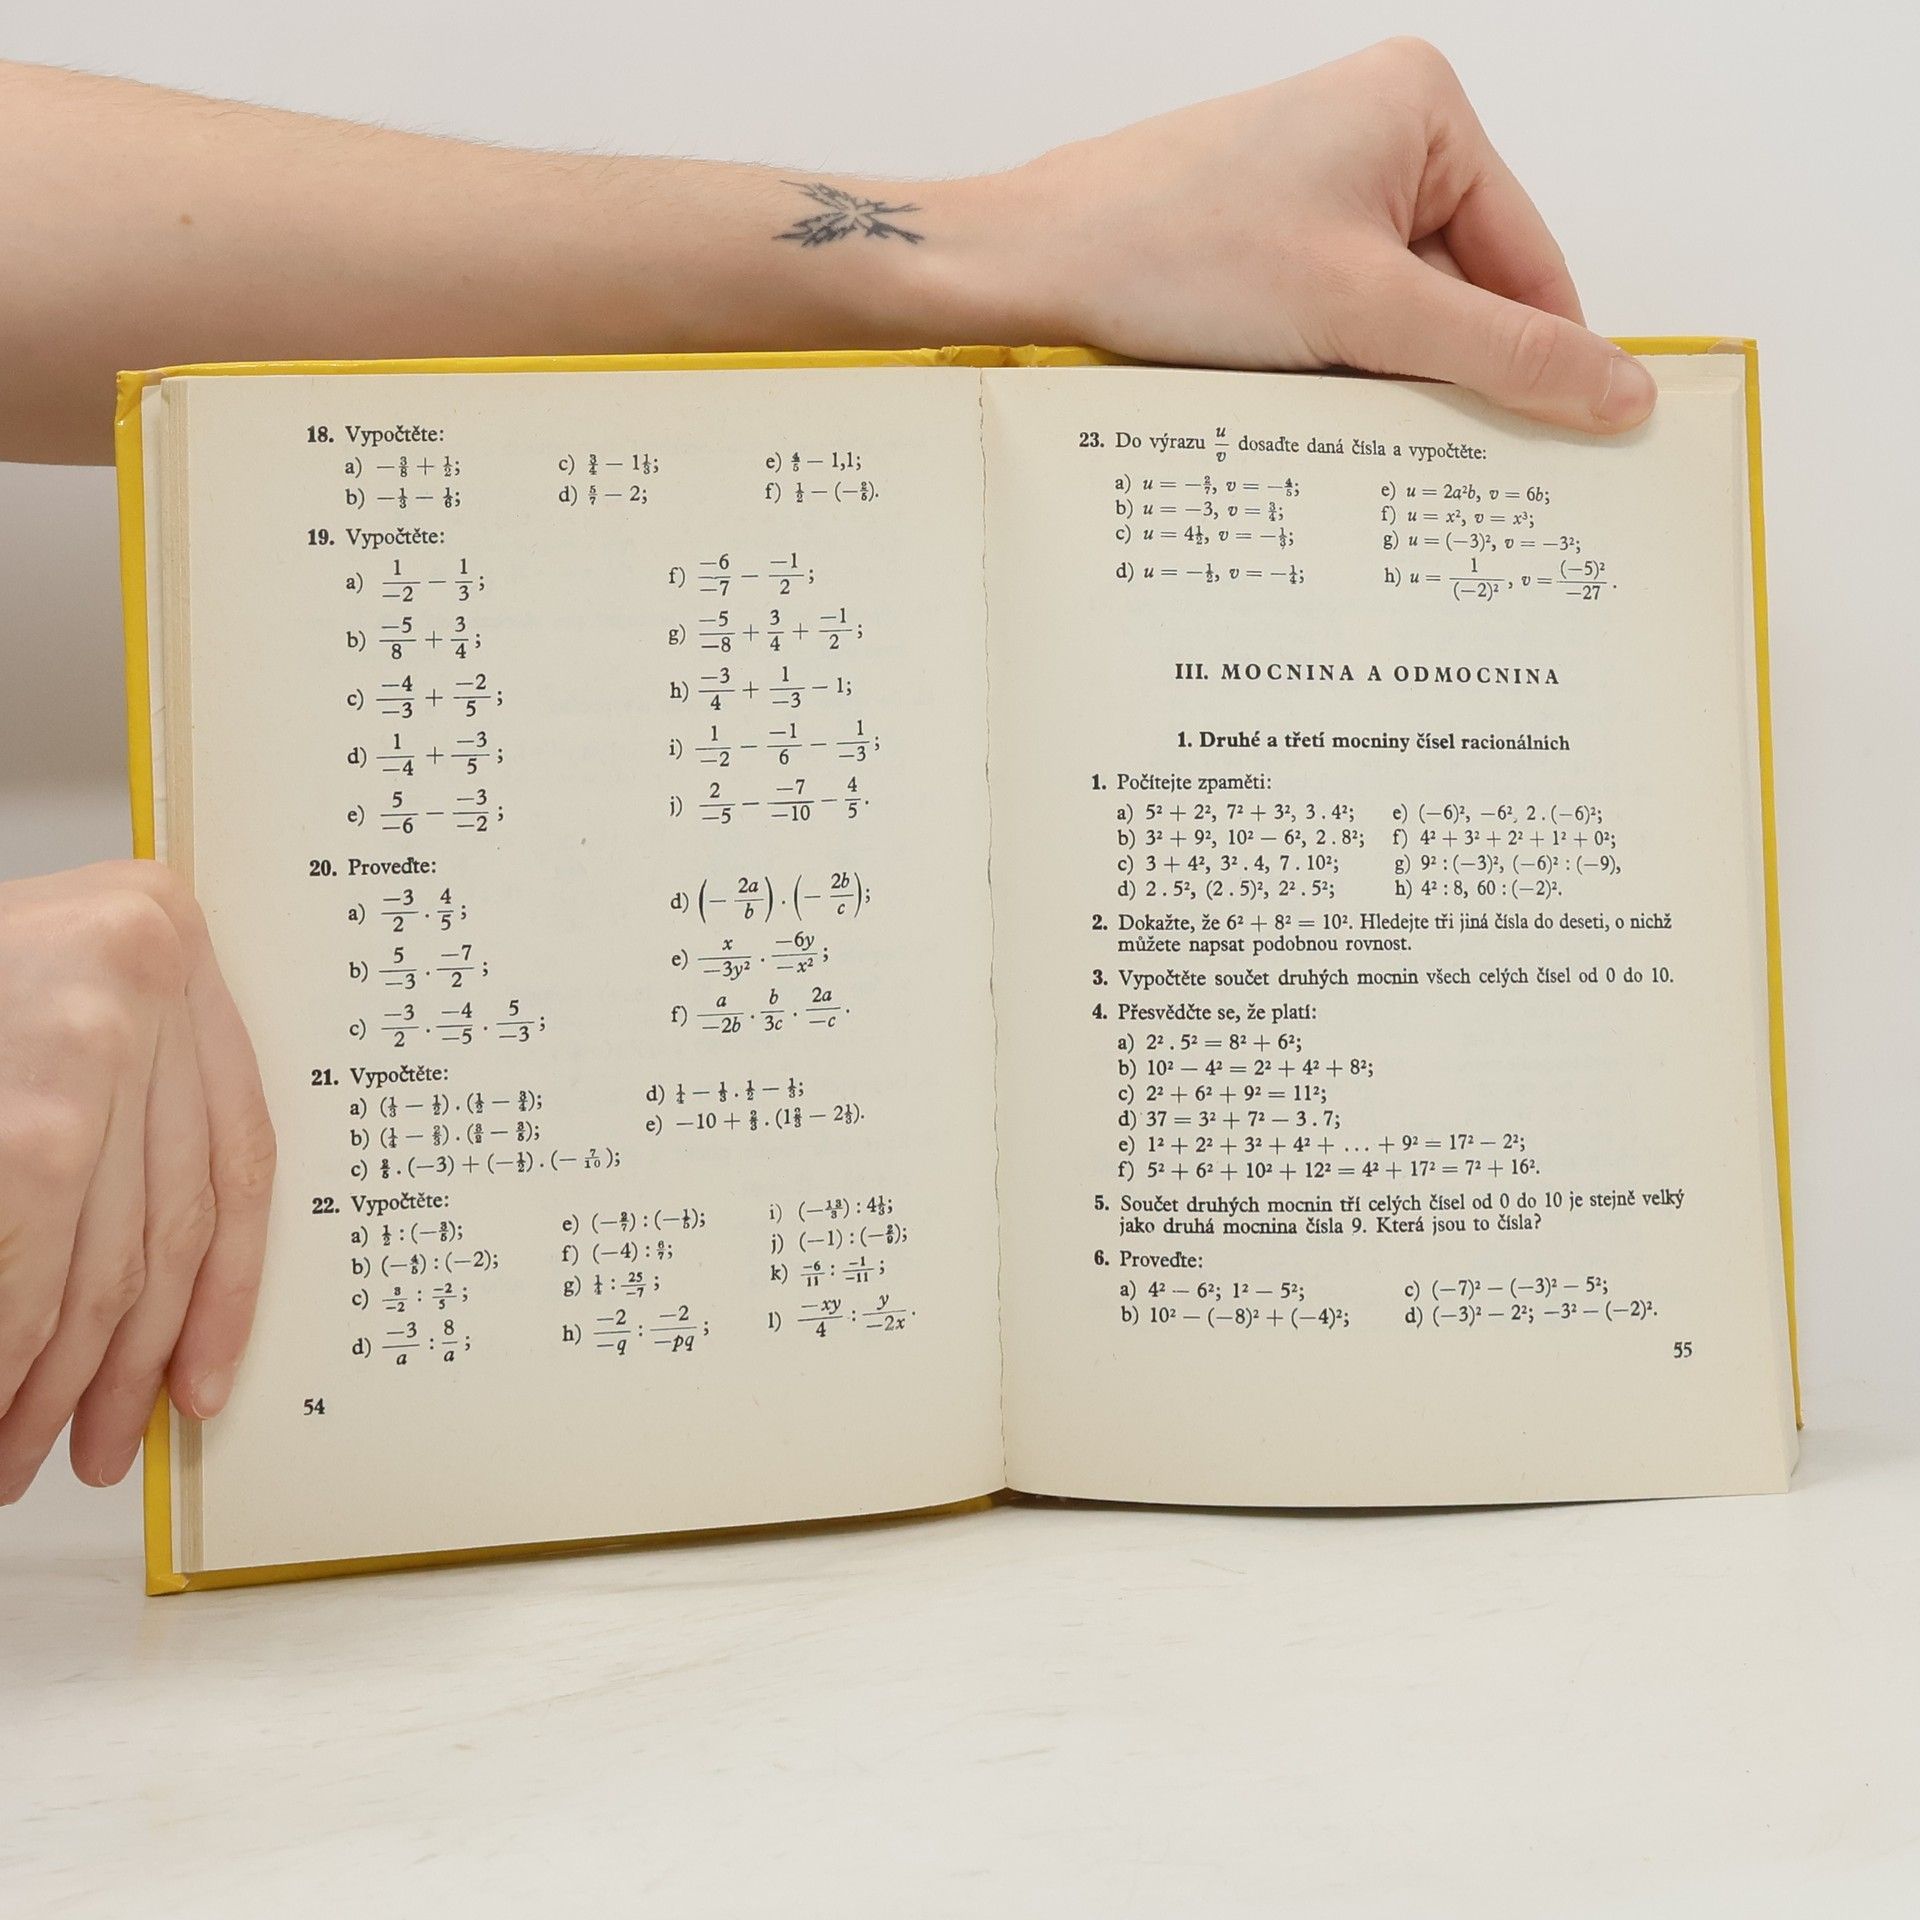 18. Vypočtěte:
a) −3/8 + 1/2; c) 3/4 − 1 1/3; e) 4/5 − 1,1;
b) −1/3 − 1/6; d) 5/7 − 2; f) 1/2 − (−2/5).
19. Vypočtěte:
a) 1/−2 − 1/3; f) −6/−7 − −1/2;
b) −5/8 + 3/4; g) −5/−8 + 3/4 + −1/2;
c) −4/−3 + −2/5; h) −3/4 + 1/−3 − 1;
d) 1/−4 + −3/5; i) 1/−2 − −1/6 − 1/−3;
e) 5/−6 − −3/−2; j) 2/−5 − −7/−10 − 4/5.
20. Proveďte:
a) −3/2 . 4/5; d) (− 2a/b) . (− 2b/c);
b) 5/−3 . −7/2; e) x/−3y² . −6y/−x²;
c) −3/2 . −4/−5 . 5/−3; f) a/−2b . b/3c . 2a/−c.
21. Vypočtěte:
a) (1/3 − 1/2) . (1/2 − 3/4); d) 1/4 − 1/3 . 1/2 − 1/3;
b) (1/4 − 2/3) . (3/2 − 3/5); e) −10 + 2/3 . (1 2/3 − 2 1/3).
c) 2/5 . (−3) + (−1/2) . (− 7/10);
22. Vypočtěte:
a) 1/2 : (−3/5); e) (−2/7) : (−1/5); i) (−13/3) : 4 1/3;
b) (−4/5) : (−2); f) (−4) : 6/7; j) (−1) : (−2/9);
c) 3/−2 : −2/5; g) 1/4 : 25/−7; k) −6/11 : −1/−11;
d) −3/a : 8/a; h) −2/−q : −2/−pq; l) −xy/4 : y/−2x.
54
23. Do výrazu u/v dosaďte daná čísla a vypočtěte:
a) u = −2/7, v = −4/5; e) u = 2a²b, v = 6b;
b) u = −3, v = 3/4; f) u = x², v = x³;
c) u = 4 1/2, v = −1/3; g) u = (−3)², v = −3²;
d) u = −1/2, v = −1/4; h) u = 1/(−2)², v = (−5)²/−27.
III. MOCNINA A ODMOCNINA
1. Druhé a třetí mocniny čísel racionálních
1. Počítejte zpaměti:
a) 5² + 2², 7² + 3², 3 . 4²; e) (−6)², −6², 2 . (−6)²;
b) 3² + 9², 10² − 6², 2 . 8²; f) 4² + 3² + 2² + 1² + 0²;
c) 3 + 4², 3² . 4, 7 . 10²; g) 9² : (−3)², (−6)² : (−9),
d) 2 . 5², (2 . 5)², 2² . 5²; h) 4² : 8, 60 : (−2)².
2. Dokažte, že 6² + 8² = 10². Hledejte tři jiná čísla do deseti, o nichž
můžete napsat podobnou rovnost.
3. Vypočtěte součet druhých mocnin všech celých čísel od 0 do 10.
4. Přesvědčte se, že platí:
a) 2² . 5² = 8² + 6²;
b) 10² − 4² = 2² + 4² + 8²;
c) 2² + 6² + 9² = 11²;
d) 37 = 3² + 7² − 3 . 7;
e) 1² + 2² + 3² + 4² + ... + 9² = 17² − 2²;
f) 5² + 6² + 10² + 12² = 4² + 17² = 7² + 16².
5. Součet druhých mocnin tří celých čísel od 0 do 10 je stejně velký
jako druhá mocnina čísla 9. Která jsou to čísla?
6. Proveďte:
a) 4² − 6²; 1² − 5²; c) (−7)² − (−3)² − 5²;
b) 10² − (−8)² + (−4)²; d) (−3)² − 2²; −3² − (−2)².
55